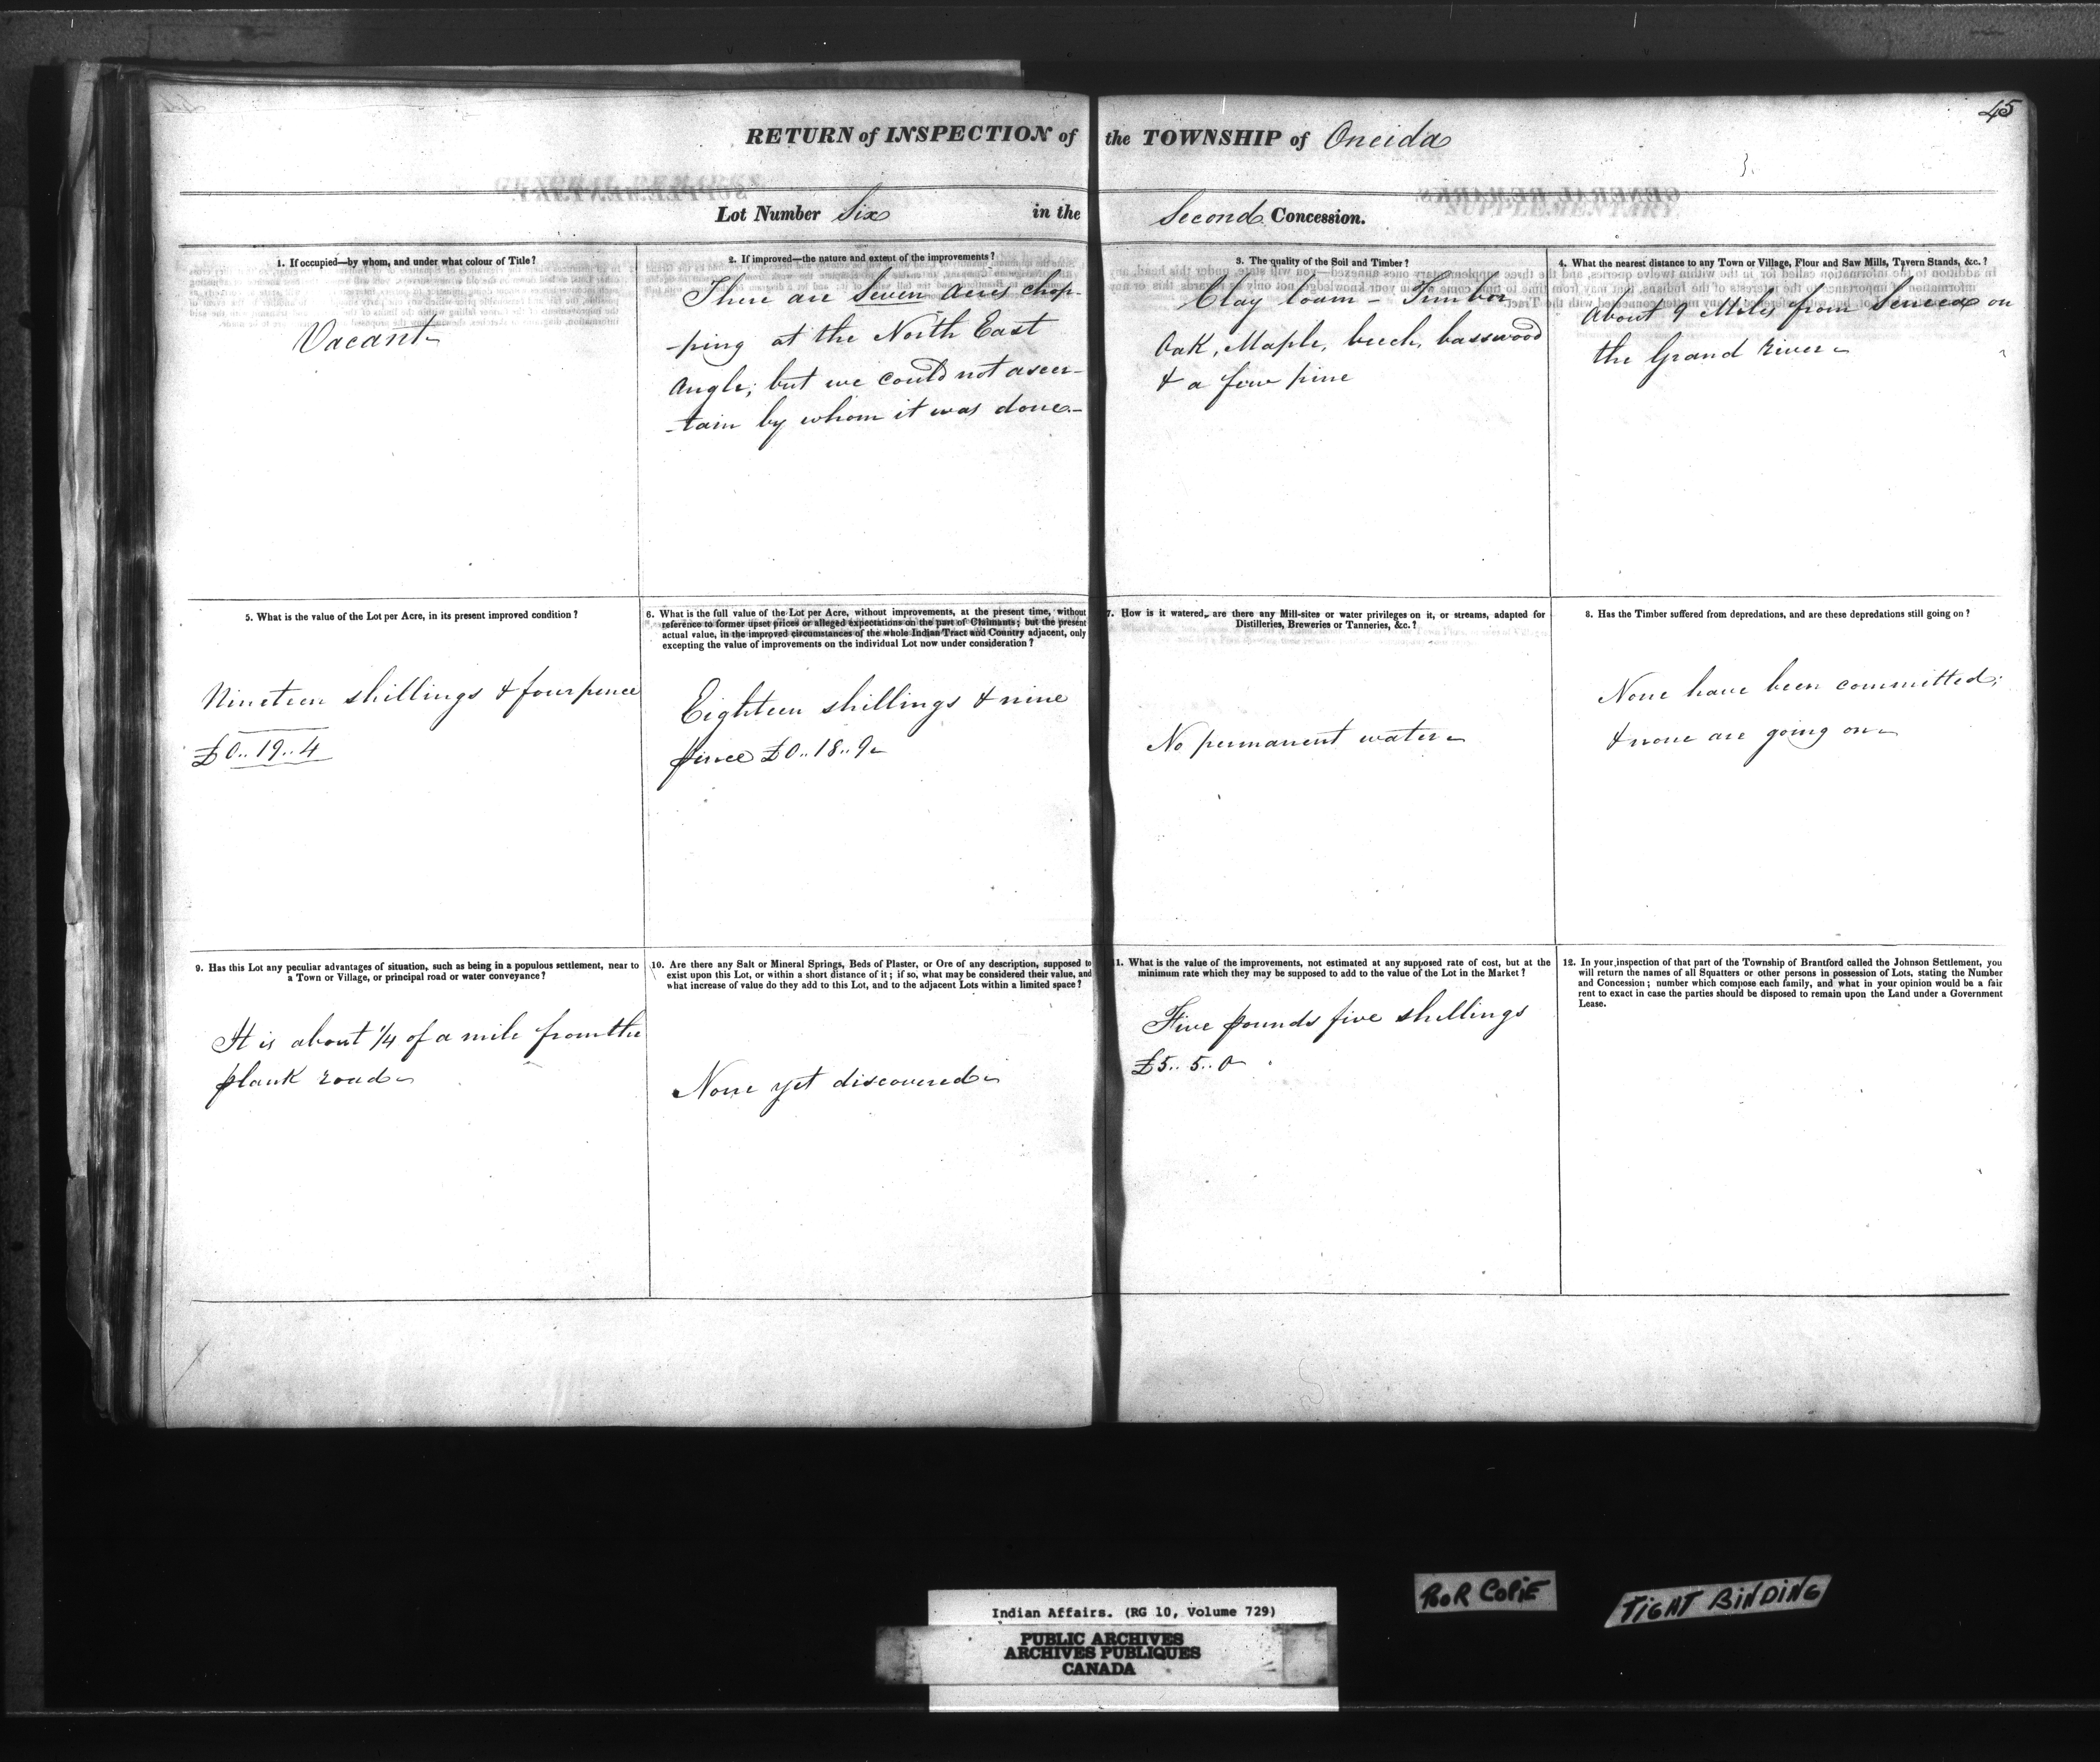 45
RETURN of INSPECTION of the TOWNSHIP of Oneida
Lot Number Six in the Second Concession.
1. If occupied—by whom, and under what colour of Title?
Vacant
2. If improved—the nature and extent of the improvements?
There are Seven Acres chop-
-ping at the North East
Angle; but we could not ascer-
-tain by whom it was done.-
3. The quality of the Soil and Timber?
Clay loam - Timber
Oak, Maple, beech, basswood
& a few pine
4. What the nearest distance to any Town or Village, Flour and Saw Mills, Tavern Stands, &c.?
About 9 Miles from Seneca on
the Grand River
5. What is the value of the Lot per Acre, in its present improved condition?
Nineteen shillings & four pence
£0..19..4
6. What is the full value of the Lot per Acre, without improvements, at the present time, without
reference to former upset prices or alleged expectations on the part of Claimants; but the present
actual value, in the improved circumstances of the whole Indian Tract and Country adjacent, only
excepting the value of improvements on the individual Lot now under consideration?
Eighteen shillings & nine
pence £0..18..9
7. How is it watered, are there any Mill-sites or water privileges on it, or streams, adapted for
Distilleries, Breweries or Tanneries, &c.?
No permanent water
8. Has the Timber suffered from depredations, and are these depredations still going on?
None have been committed;
& none are going on
9. Has this Lot any peculiar advantages of situation, such as being in a populous settlement, near to
a Town or Village, or principal road or water conveyance?
It is about 1/4 of a mile from the
plank road
10. Are there any Salt or Mineral Springs, Beds of Plaster, or Ore of any description, supposed to
exist upon this Lot, or within a short distance of it; if so, what may be considered their value, and
what increase of value do they add to this Lot, and to the adjacent Lots within a limited space?
None yet discovered
11. What is the value of the improvements, not estimated at any supposed rate of cost, but at the
minimum rate which they may be supposed to add to the value of the Lot in the Market?
Five pounds five shillings
£5..5..0
12. In your inspection of that part of the Township of Brantford called the Johnson Settlement, you
will return the names of all Squatters or other persons in possession of Lots, stating the Number
and Concession; number which compose each family, and what in your opinion would be a fair
rent to exact in case the parties should be disposed to remain upon the Land under a Government
Lease.
Indian Affairs. (RG 10, Volume 729)
PUBLIC ARCHIVES
ARCHIVES PUBLIQUES
CANADA
POOR COPIE
TIGHT BINDING